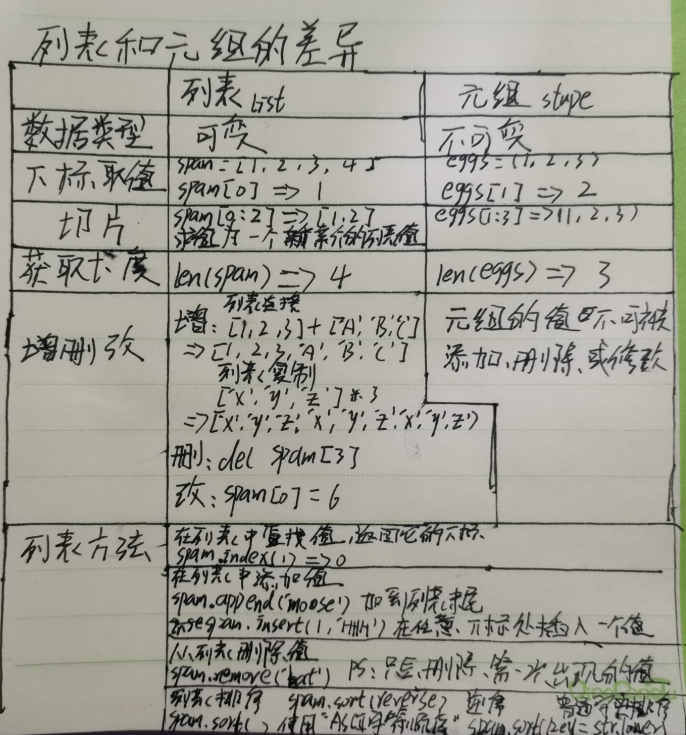 列表和元组的差异
列表 List
元组 stupe
数据类型
可变
不可变
下标取值
span = [1, 2, 3, 4]
spam[0] => 1
eggs = (1, 2, 3)
eggs[1] => 2
切片
spam[0:2] => [1,2]
一个新的列表值
eggs[1:3] => (1, 2, 3)
获取长度
len(spam) => 4
len(eggs) => 3
增删改
列表连接
增: [1, 2, 3] + ['A', 'B', 'C']
=> [1, 2, 3, 'A', 'B', 'C']
列表复制
['x', 'y', 'z'] * 3
=> ['x', 'y', 'z', 'x', 'y', 'z', 'x', 'y', 'z')
删: del spam[3]
改: spam[0] = 6
元组的值不可被
添加、删除、或修改
列表方法
在列表中查找值,返回它的下标
spam.index(1) => 0
在列表中添加值
spam.append('moose') 加到列表末尾
span.insert(1, 'HHH') 在任意下标处插入一个值
从列表删除值
spam.remove('bat') PS: 只是删除第一次出现的值
列表排序 spam.sort(reverse) 逆序 普通字典排序
spam.sort() 使用"ASCII字符顺序" spam.sort(key = str.lower)